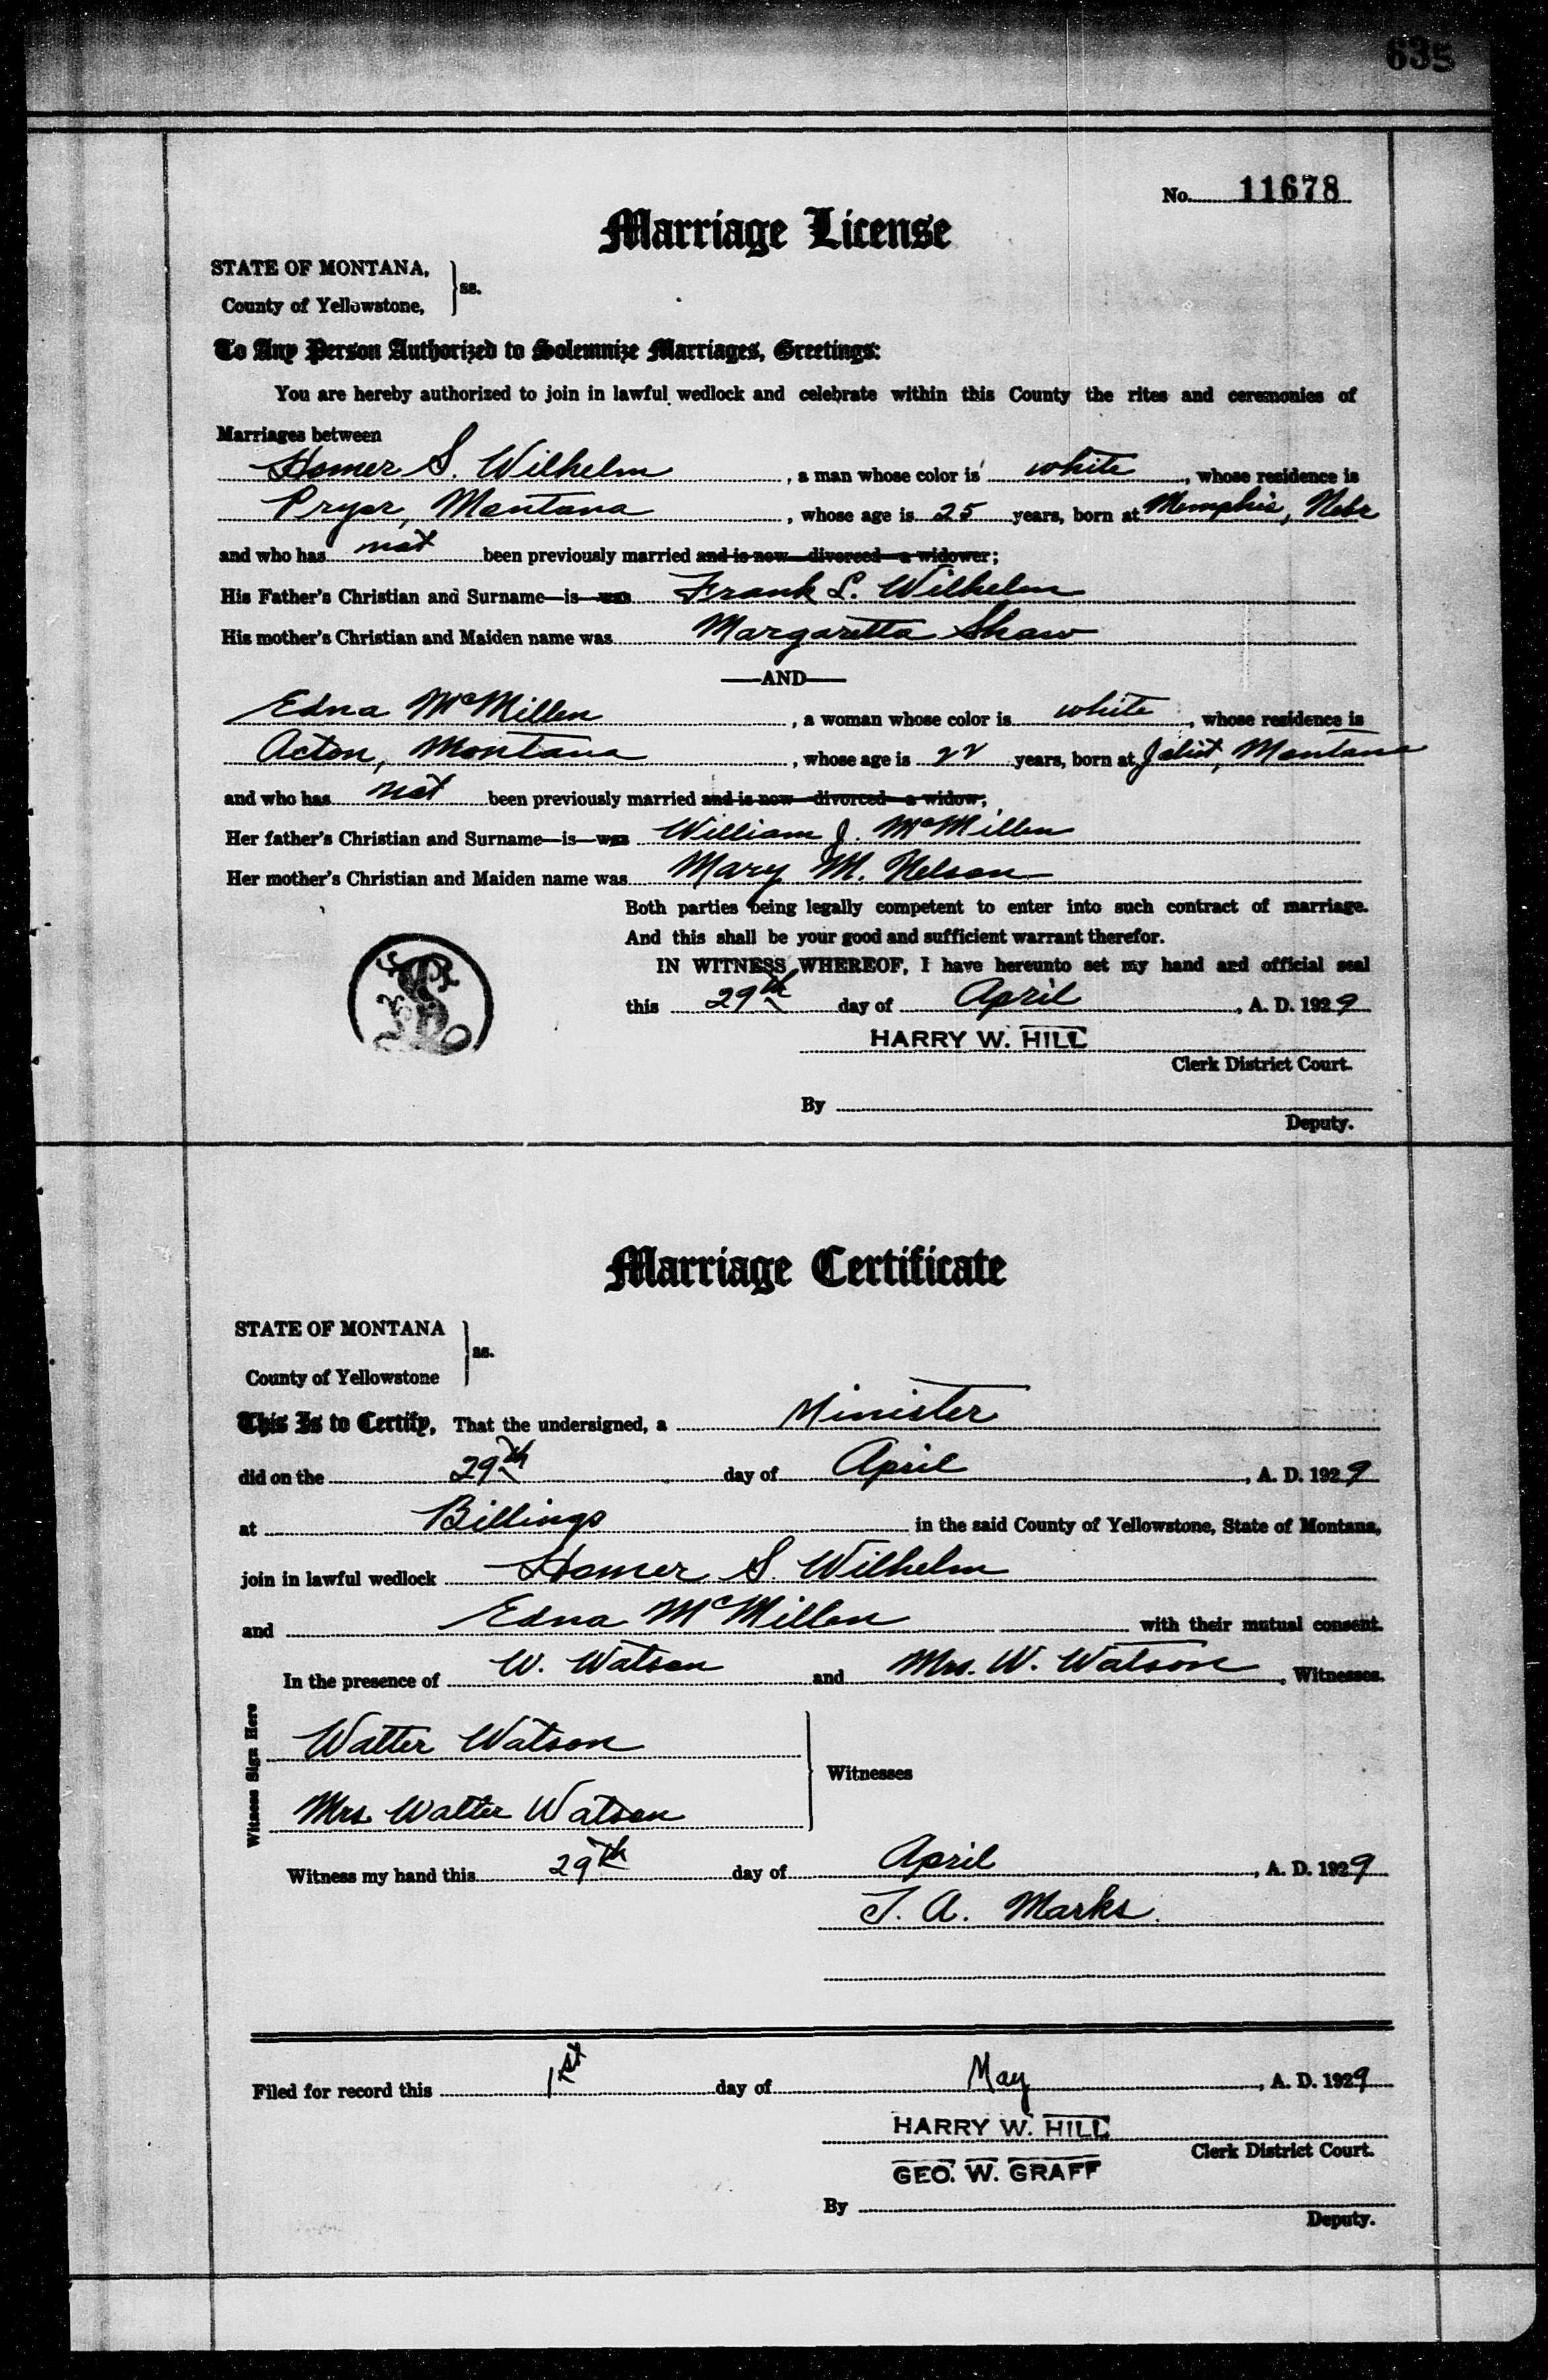 635
No. 11678
Marriage License
STATE OF MONTANA,
ss.
County of Yellowstone,
To Any Person Authorized to Solemnize Marriages, Greetings:
You are hereby authorized to join in lawful wedlock and celebrate within this County the rites and ceremonies of
Marriages between
Homer S. Wilhelm, a man whose color is white, whose residence is
Pryor, Montana, whose age is 25 years, born at Memphis, Nebr
and who has not been previously married and is now—divorced—a widower;
His Father's Christian and Surname—is—was Frank L. Wilhelm
His mother's Christian and Maiden name was Margaretta Shaw
—AND—
Edna McMillen, a woman whose color is white, whose residence is
Acton, Montana, whose age is 22 years, born at Joliet, Montana
and who has not been previously married and is now—divorced—a widow;
Her father's Christian and Surname—is—was William J. McMillen
Her mother's Christian and Maiden name was Mary M. Nelson
Both parties being legally competent to enter into such contract of marriage.
And this shall be your good and sufficient warrant therefor.
IN WITNESS WHEREOF, I have hereunto set my hand and official seal
this 29th day of April, A. D. 1929
HARRY W. HILL
Clerk District Court.
By
Deputy.
Marriage Certificate
STATE OF MONTANA
ss.
County of Yellowstone
This Is to Certify, That the undersigned, a Minister
did on the 29th day of April, A. D. 1929
at Billings in the said County of Yellowstone, State of Montana,
join in lawful wedlock Homer S. Wilhelm
and Edna McMillen with their mutual consent.
In the presence of W. Watson and Mrs. W. Watson, Witnesses.
Witness Sign Here
Walter Watson
Witnesses
Mrs. Walter Watson
Witness my hand this 29th day of April, A. D. 1929
T. A. Marks.
Filed for record this 1st day of May, A. D. 1929
HARRY W. HILL
Clerk District Court.
GEO. W. GRAFF
By
Deputy.